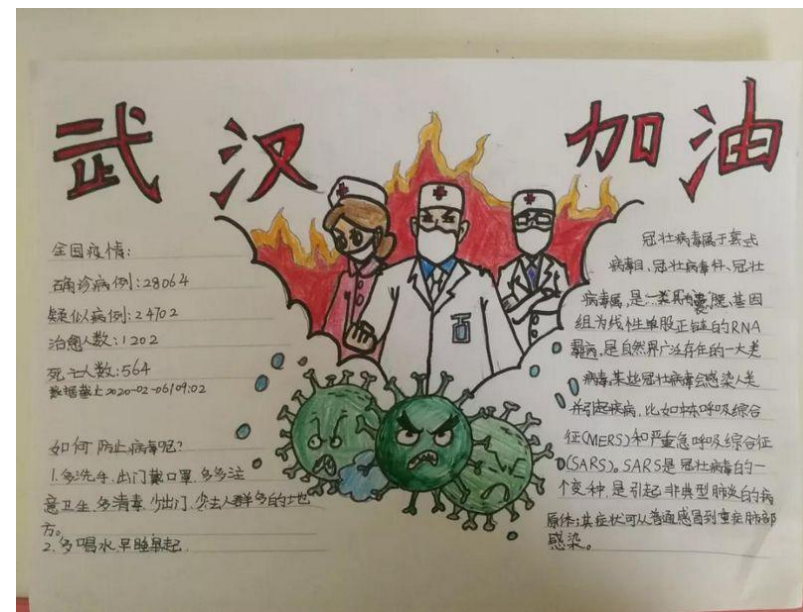 武汉 加油
全国疫情:
确诊病例:28064
疑似病例:24702
治愈人数:1202
死亡人数:564
数据截止2020-02-06/09:02
如何防止病毒呢?
1.多洗手,出门戴口罩,多多注
意卫生,多消毒,少出门,少去人群多的地
方。
2.多喝水,早睡早起.
冠壮病毒属于套式
病毒目、冠壮病毒科、冠壮
病毒属,是一类具有囊膜、基因
组为线性单股正链的RNA
病毒,是自然界广泛存在的一大类
病毒,某些冠壮病毒会感染人类
并引起疾病,比如 呼吸综合
征(MERS)和严重急呼吸综合征
(SARS)。SARS是冠壮病毒的一
个变种,是引起非典型肺炎的病
原体,其症状可从普通感冒到重症肺部
感染。